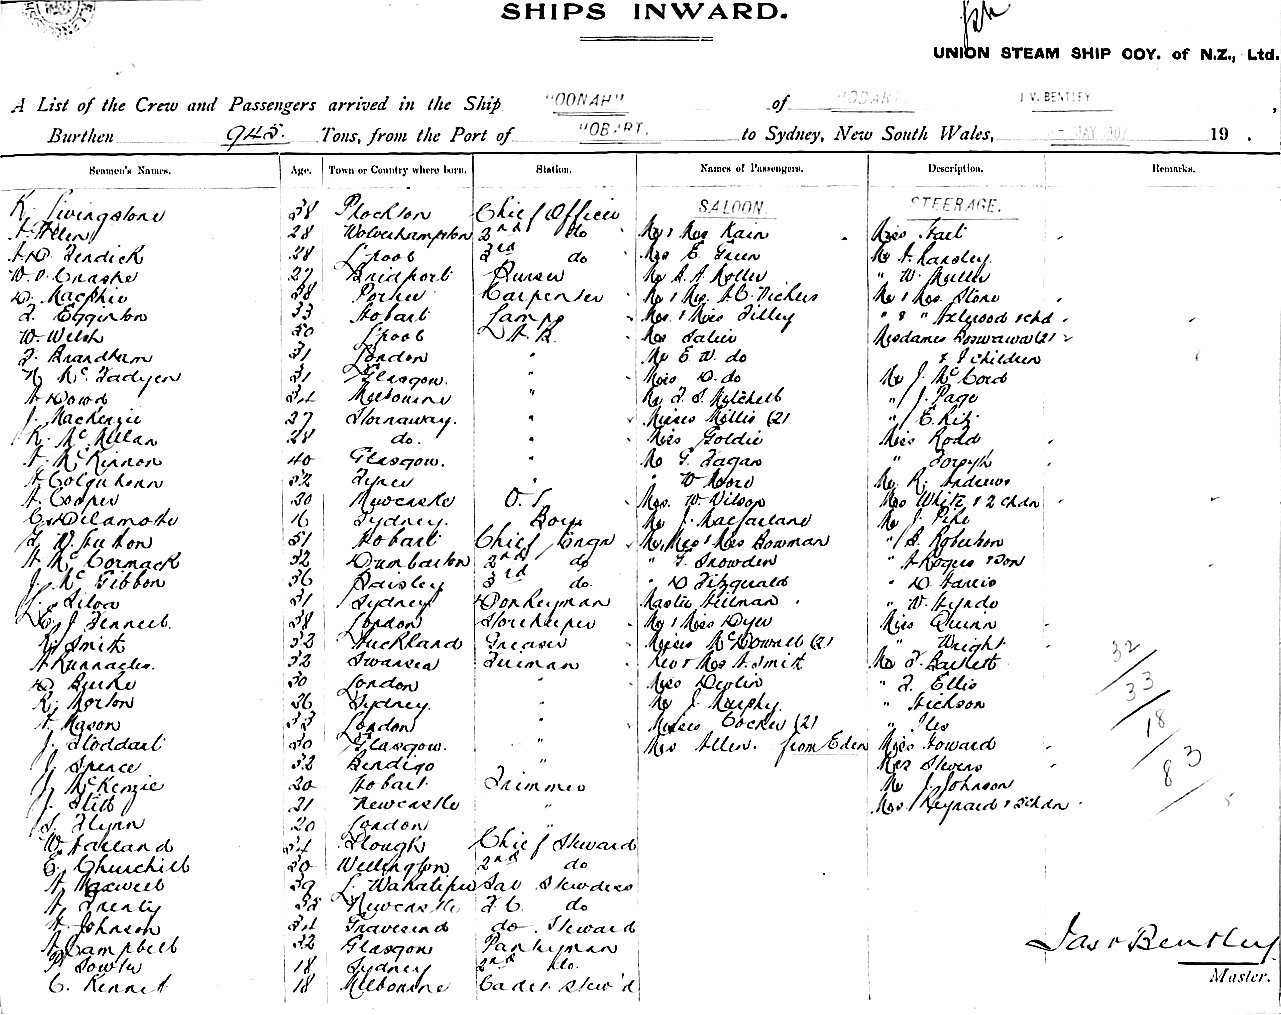 SHIPS INWARD.
UNION STEAM SHIP COY. of N.Z., Ltd.
A List of the Crew and Passengers arrived in the Ship "OONAH" of HOBART J V. BENTLEY ,
Burthen 945. Tons, from the Port of HOBART. to Sydney, New South Wales, MAY 19 .
Seamen's Names. Age. Town or Country where born. Station. Names of Passengers. Description. Remarks.
SALOON STEERAGE.
K. Livingstone 38 Plockton Chief Officer
A Allen 28 Wolverhampton 2nd do Mr & Mrs Kain Miss Hart
28 L'pool 3rd do Mrs E. Green Mr A Lansley
27 Bridport Purser " W. Muller
D. MacPhie 38 Carpenter Mr & Mrs Stone
Egginton 33 Hobart Lamps Mrs & Miss Tilley
W. Welsh 30 L'pool A.B.
Brandham 31 London " Mr E W. do & children
Mc Fadyen 31 Glasgow. " Miss D. do Mr J. McCord
Melbourne " Mitchell " J. Page
J. Mackenzie 27 Stornaway. " Misses Mellis (2)
K. McMillan 28 do. " Miss Goldie Miss Rodd
A McKinnon 40 Glasgow. " Mr G. Fagan " Forsyth
A Colquhoun 32 " W Moore Mr R. Andrews
A Cooper 20 Newcastle O.S. Mrs. W. Wilson Mrs White & 2 chdn
C. Delamothe 16 Sydney. Boy Mr J. Macfarland Mr J. Pike
51 Hobart Chief Engr Mr, Mrs & Miss Bowman " S. Robertson
A McCormack 32 Dumbarton 2nd do " G. Snowden " A Rogers & Son
J. McGibbon 36 Paisley 3rd do. " D Fitzgerald " D Harris
L. Silva 31 Sydney Donkeyman Master Hillman " W. Hynds
C. J Fennell 38 London Storekeeper Mr & Miss Dyer Miss Quinn
Smith 32 Auckland Greaser Misses McDowall (2) " Wright
A Runnacles. 32 Swansea Fireman Rev & Mrs A. Smith Mr F. Baskett
D Burke 30 London " Miss Devlin " F. Ellis
R. Morton 36 Sydney. " Mr J. Murphy. " Hickson
A Mason 33 London " Misses Cocker (2) " Iles
J. Stoddart 30 Glasgow. " Mrs Allen. from Eden Miss Howard
J. Spence 32 Bendigo " Mrs Stevens
J. McKenzie 20 Hobart Trimmer Mr J. Johnson
J. 21 Newcastle " Mrs & 3 chdn
S. Flynn 20 London "
W. Farland Slough Chief Steward
E. Churchill 30 Wellington 2nd do
A Maxwell 39 L. Wakatipu Sal Stewdess
A Treaty Newcastle F.C. do
A. Johnson Gravesend do. Steward
A Campbell 22 Glasgow Pantryman
P. Fowler 18 Sydney 2nd do.
C. Kennet 18 Melbourne Cadet Stew'd
32
33
18
83
Jas V Bentley
Master.